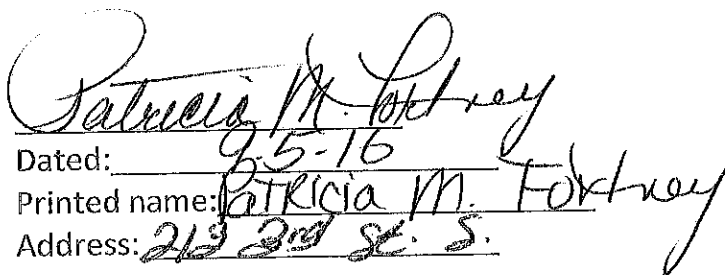 Patricia M. Fortney
Dated: 9-5-16
Printed name: PATRICIA M. Fortney
Address: 213 3rd St. S.